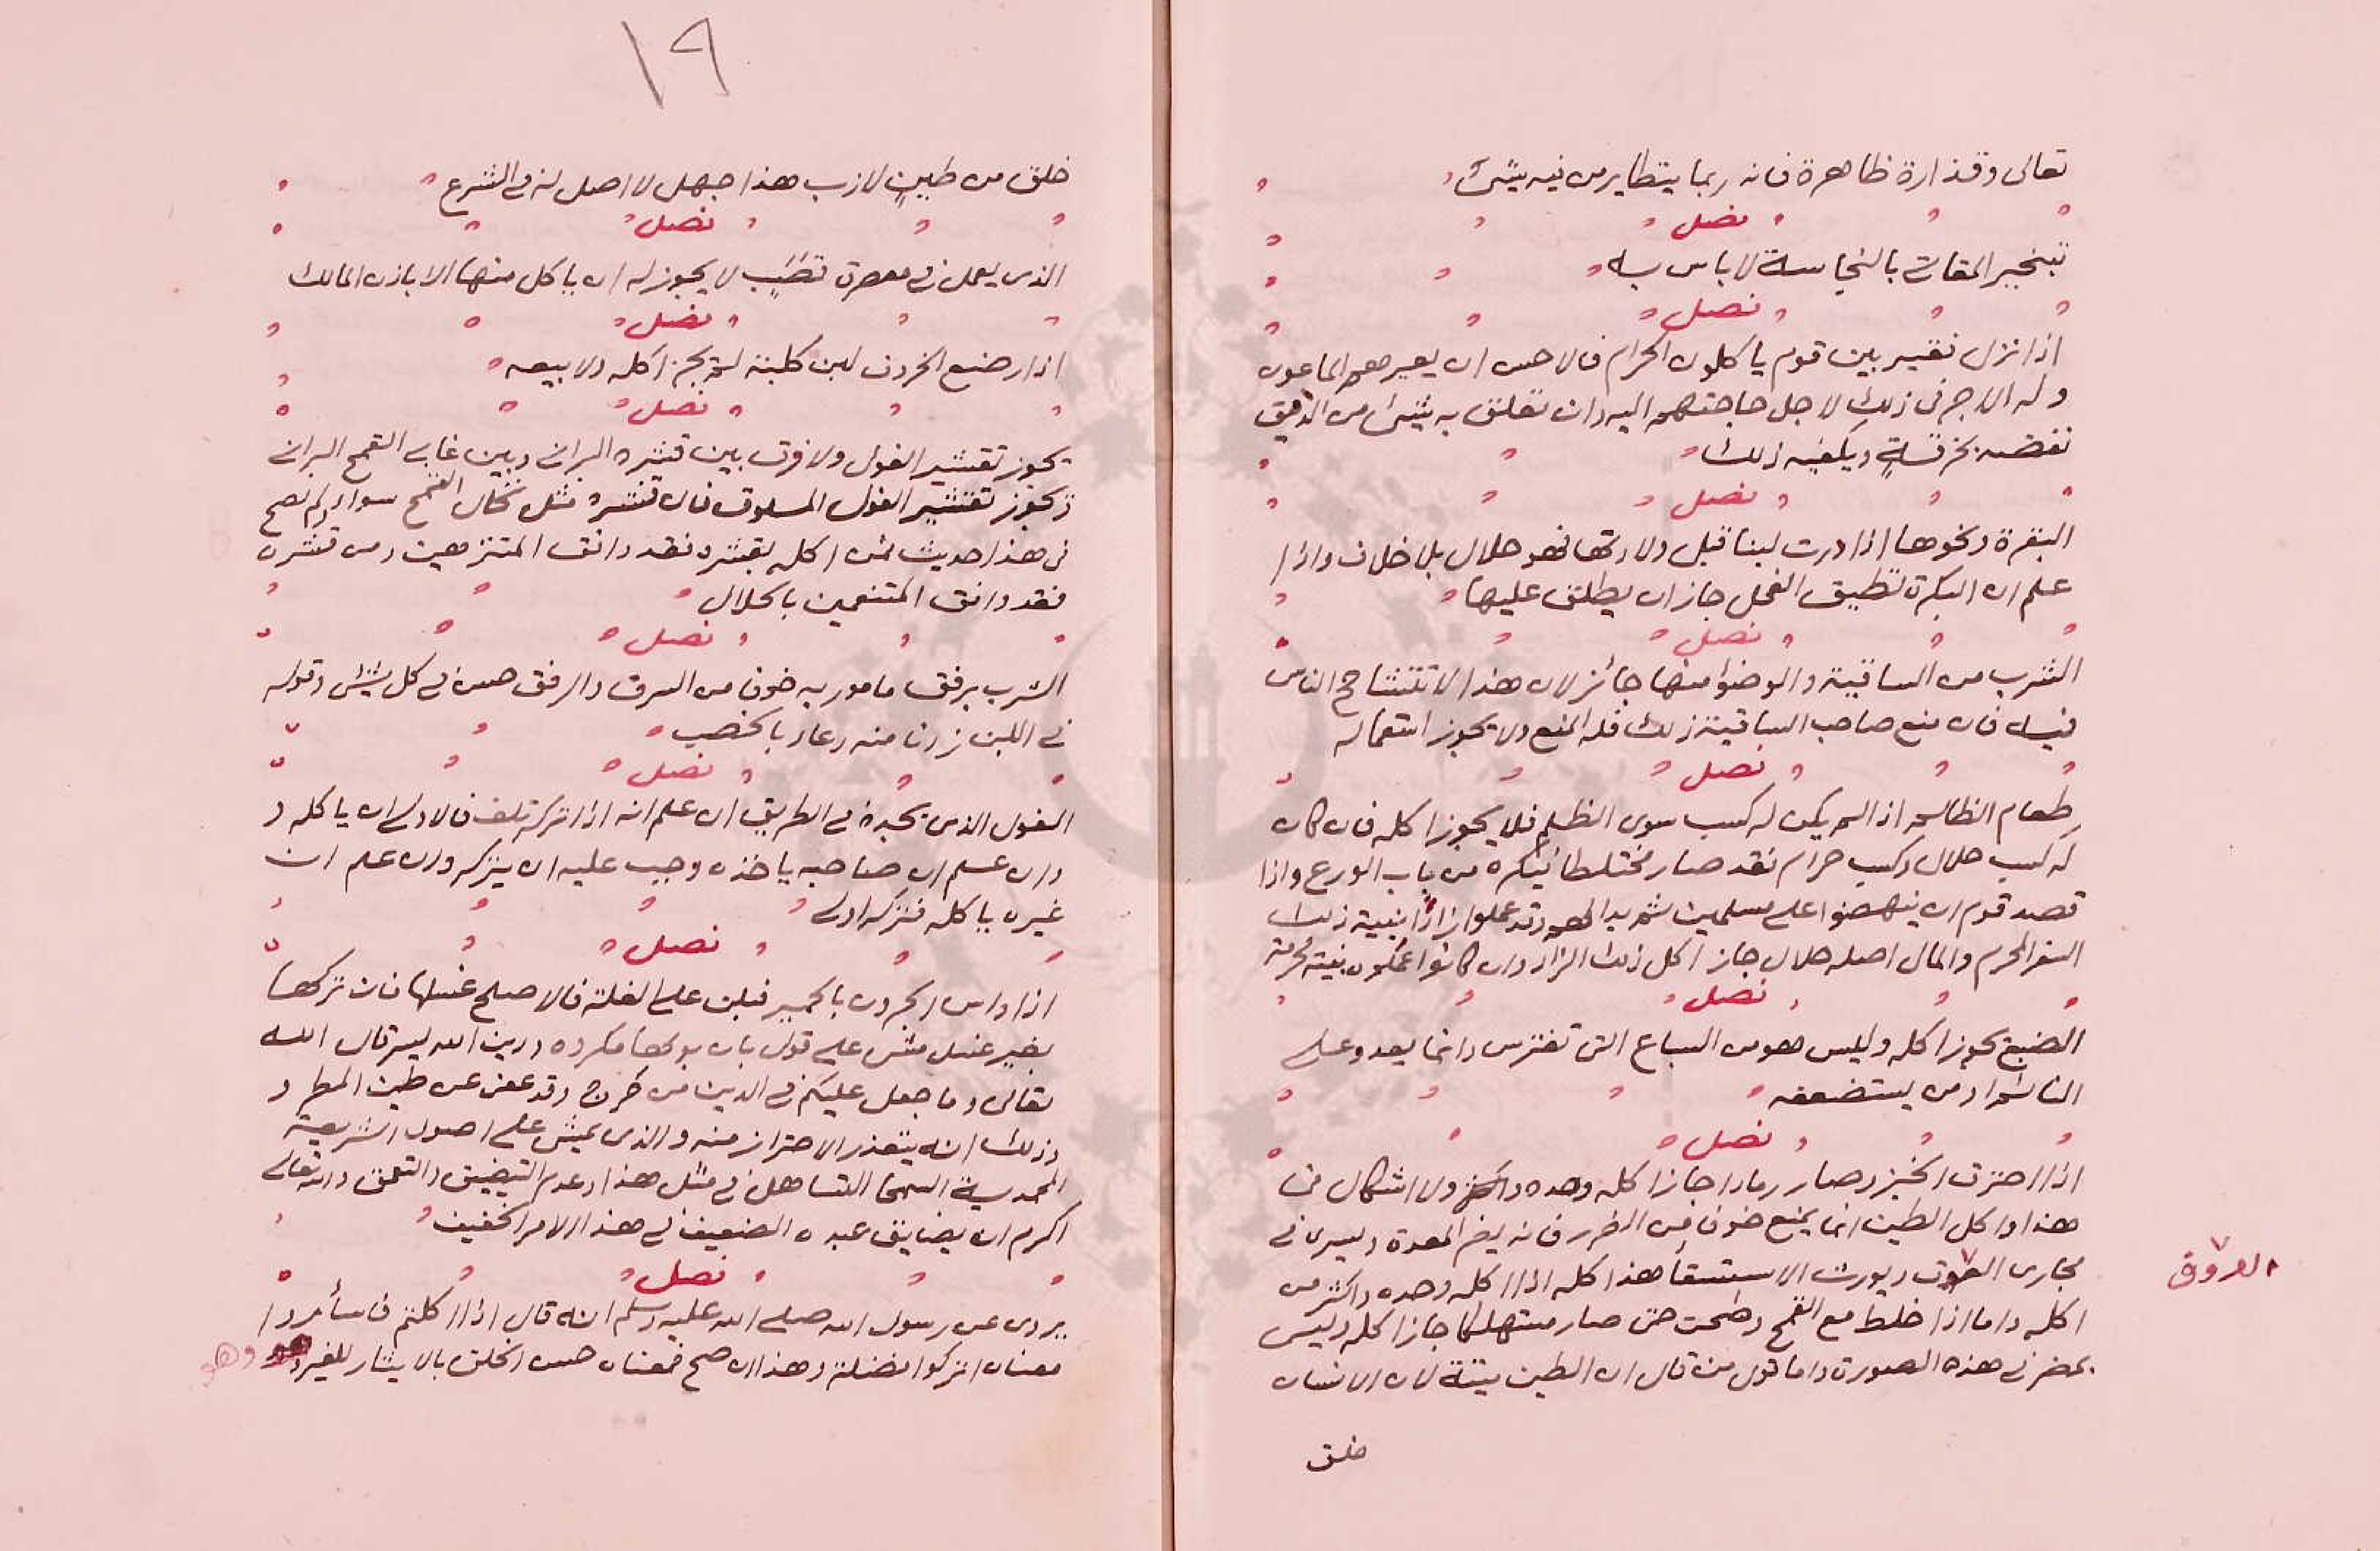 تعالى وقذارة ظاهرة فانه ربما يتطاير من فيه شئ
فصل
تبخير المقاتى بالنجاسة لا باس به
فصل
اذا نزل فقير بين قوم ياكلون الحرام فالاحسن ان يعيرهم الماعون
وله الاجر فى ذلك لاجل حاجتهم اليه وان تعلق به شئ من الدقيق
نفضه بخرقة ويكفيه ذلك
فصل
البقرة ونحوها اذا درت لبنا قبل ولادتها فهو حلال بلا خلاف واذا
علم ان البكرة تطيق الفحل جاز ان يطلق عليها
فصل
الشرب من الساقية والوضوا منها جائز لان هذا لا تتشاحح الناس
فيه فان منع صاحب الساقية ذلك فله المنع ولا يجوز استعماله
فصل
طعام الظالم اذا لم يكن له كسب سوى الظلم فلا يجوز اكله فان كان
له كسب حلال وكسب حرام فقد صار مختلطا فيكره من باب الورع واذا
قصد قوم ان ينهضوا على مسلمين ثم بدا لهم وقد عملوا زادا بنية ذلك
السفر المحرم والمال اصله حلال جاز اكل ذلك الزاد وان كانوا عملوه بنية محرمة
فصل
الضبع يجوز اكله وليس هو من السباع التى تفترس وانما يعدو على
النائم او من يستضعفه
فصل
اذا احترق الخبز وصار رمادا جاز اكله وحده ولا اشكال فى
هذا واكل الطين انما يمنع خوفا من الضرر فانه يضر المعدة ويسرى فى
مجارى العروق ويورث الاستسقا هذا كله اذا اكله وحده واكثر من
العروق
اكله واما اذا خلط مع القمح وطحن حتى صار مستهلكا جاز اكله وليس
بمضر فى هذه الصورة واما قول من قال ان الطين ميتة لان الانسان
خلق
١٩
خلق من طين لازب هذا جهل لا اصل له فى الشرع
فصل
الذى يعمل فى معصرة قصب لا يجوز له ان ياكل منها الا باذن المالك
فصل
اذا رضع الخروف لبن كلبة لم يجز اكله ولا بيعه
فصل
يجوز تقشير الفول ولا فرق بين قشره البرانى وبين غاب القمح البرانى
و يجوز تقشير الفول المسلوق فان قشره مثل نخال القمح سوا ولم يصح
فى هذا حديث فمن اكله بقشره فقد وافق المتنزهين ومن قشره
فقد وافق المتنعمين بالحلال
فصل
الشرب برفق مامور به خوفا من الشرق والرفق حسن فى كل شئ وقوله
فى اللبن زدنا منه دعا بالخصب
فصل
الفول الذى يجده فى الطريق ان علم انه اذا تركه تلف فالاولى ان ياكله و
وان علم ان صاحبه ياخذه وجب عليه ان يتركه وان علم ان
غيره ياكله فتركه اولى
فصل
اذا داس الجرون بالحمير فبلن على الغلة فالاصلح غسلها فان تركها
بغير غسل مشى على قول بان بولها مكروه ودين الله يسر قال الله
تعالى وما جعل عليكم فى الدين من حرج وقد عفى عن طين المطر و
وذلك انه يتعذر الاحتراز منه والذى يمشى على اصول الشريعة
المحمدية السمحا التساهل فى مثل هذا وعدم التضييق والتعمق والله تعالى
اكرم ان يضايق عبده الضعيف فى هذا الامر الخفيف
فصل
يروى عن رسول الله صلى الله عليه وسلم انه قال اذا اكلتم فاسأروا
معناه اتركوا فضلة وهذا ان صح فمعناه حسن الخلق بالايثار للغير وهو
وهو